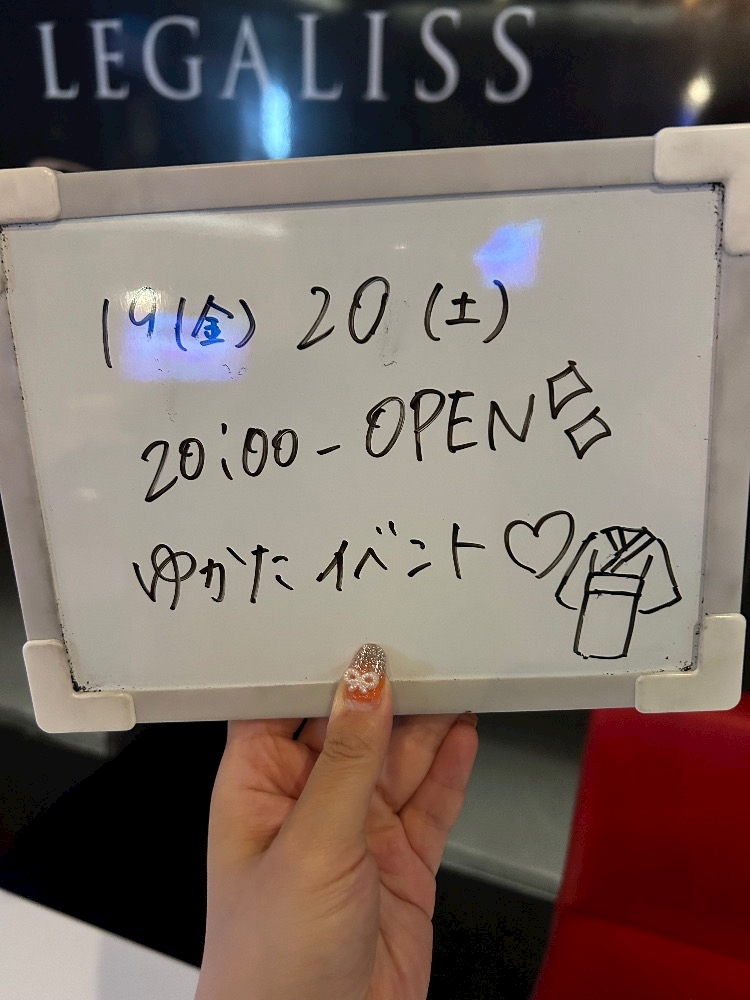 LEGALISS
19(金) 20(土)
20:00- OPEN
ゆかたイベント♡